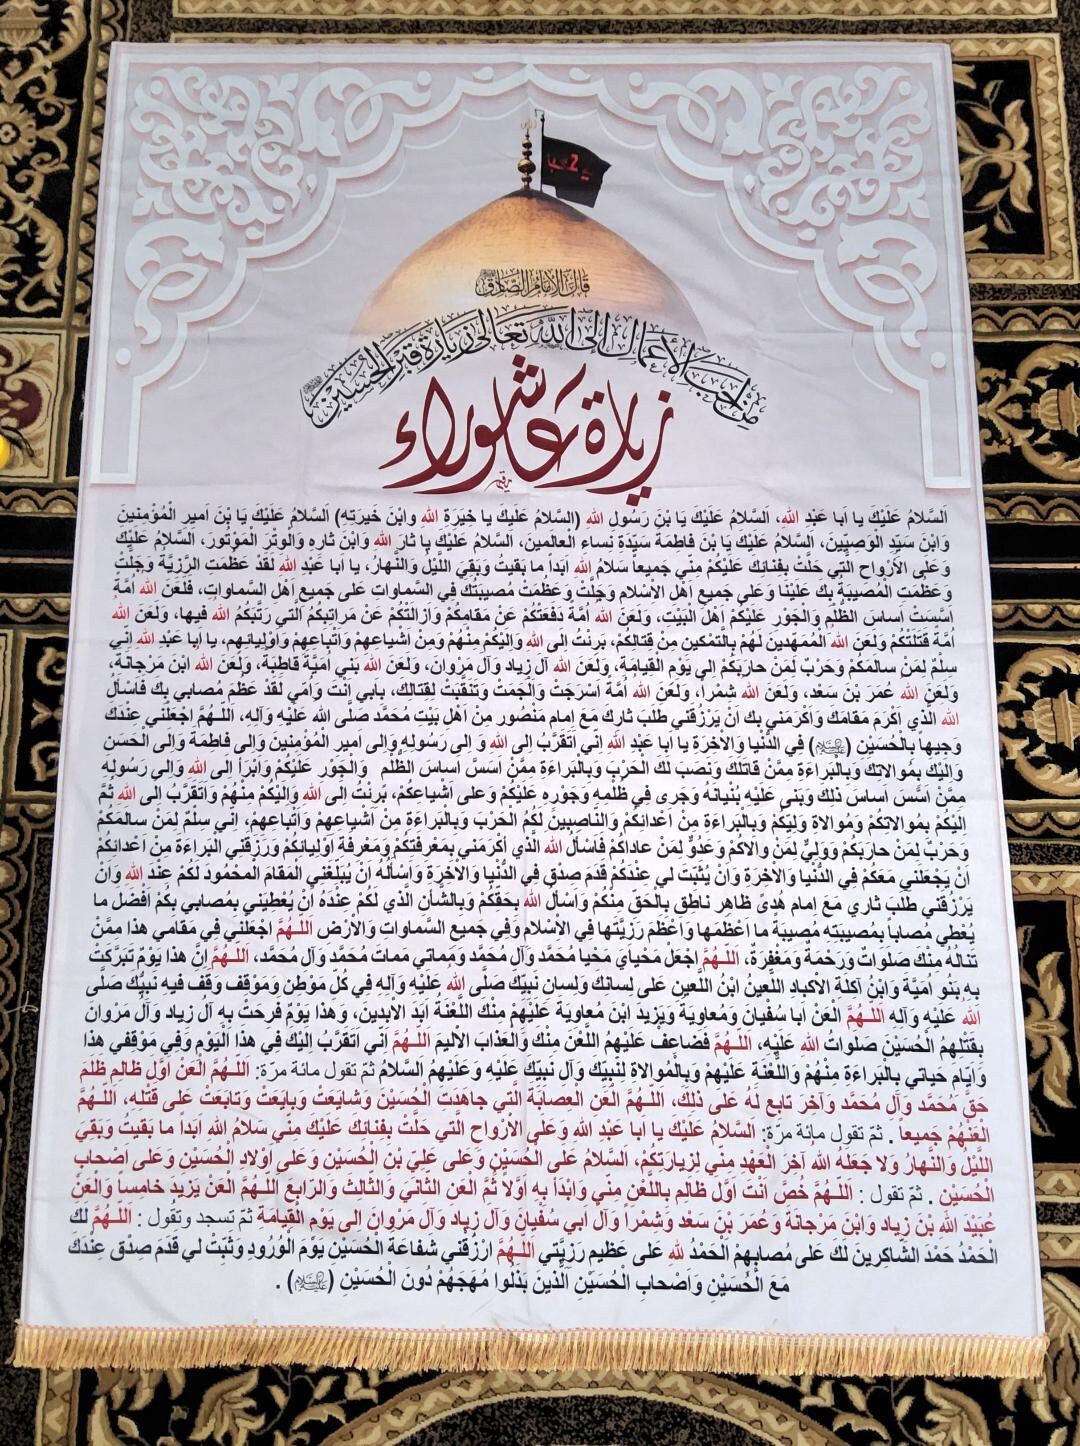 قال الإمام الصادق
من احب الأعمال إلى الله تعالى زيارة قبر الحسين
زيارة عاشوراء
اَلسَّلامُ عَلَيْكَ يا اَبا عَبْدِ اللهِ، اَلسَّلامُ عَلَيْكَ يَا بْنَ رَسُولِ اللهِ (السَّلامُ عَلَيكَ يا خِيَرَةِ اللهِ وابْنَ خَيرَتِهِ) اَلسَّلامُ عَلَيْكَ يَا بْنَ اَميرِ الْمُؤْمِنينَ
وَابْنَ سَيِّدِ الْوَصِيّينَ، اَلسَّلامُ عَلَيْكَ يَا بْنَ فاطِمَةَ سَيِّدَةِ نِساءِ الْعالَمينَ، اَلسَّلامُ عَلَيْكَ يا ثارَ اللهِ وَابْنَ ثارِهِ وَالْوِتْرَ الْمَوْتُورَ، اَلسَّلامُ عَلَيْكَ
وَعَلَى الاَرْواحِ الَّتي حَلَّتْ بِفِنائِكَ عَلَيْكُمْ مِنّي جَميعاً سَلامُ اللهِ اَبَداً ما بَقيتُ وَبَقِيَ اللَّيْلُ وَالنَّهارُ، يا اَبا عَبْدِ اللهِ لَقَدْ عَظُمَتِ الرَّزِيَّةُ وَجَلَّتْ
وَعَظُمَتِ الْمُصيبَةُ بِكَ عَلَيْنا وَعَلى جَميعِ اَهْلِ الاِسْلامِ وَجَلَّتْ وَعَظُمَتْ مُصيبَتُكَ فِي السَّماواتِ عَلى جَميعِ اَهْلِ السَّماواتِ، فَلَعَنَ اللهُ اُمَّةً
اَسَّسَتْ اَساسَ الظُّلْمِ وَالْجَوْرِ عَلَيْكُمْ اَهْلَ الْبَيْتِ، وَلَعَنَ اللهُ اُمَّةً دَفَعَتْكُمْ عَنْ مَقامِكُمْ وَاَزالَتْكُمْ عَنْ مَراتِبِكُمُ الَّتي رَتَّبَكُمُ اللهُ فيها، وَلَعَنَ اللهُ
اُمَّةً قَتَلَتْكُمْ وَلَعَنَ اللهُ الْمُمَهِّدينَ لَهُمْ بِالتَّمْكينِ مِنْ قِتالِكُمْ، بَرِئْتُ اِلَى اللهِ وَاِلَيْكُمْ مِنْهُمْ وَمِنْ اَشْياعِهِمْ وَاَتْباعِهِمْ وَاَوْلِيائِهِم، يا اَبا عَبْدِ اللهِ اِنّي
سِلْمٌ لِمَنْ سالَمَكُمْ وَحَرْبٌ لِمَنْ حارَبَكُمْ اِلى يَوْمِ الْقِيامَةِ، وَلَعَنَ اللهُ آلَ زِياد وَآلَ مَرْوانَ، وَلَعَنَ اللهُ بَني اُمَيَّةَ قاطِبَةً، وَلَعَنَ اللهُ ابْنَ مَرْجانَةَ،
وَلَعَنَ اللهُ عُمَرَ بْنَ سَعْد، وَلَعَنَ اللهُ شِمْراً، وَلَعَنَ اللهُ اُمَّةً اَسْرَجَتْ وَاَلْجَمَتْ وَتَنَقَّبَتْ لِقِتالِكَ، بِاَبي اَنْتَ وَاُمّي لَقَدْ عَظُمَ مُصابي بِكَ فَاَسْأَلُ
اللهَ الَّذي اَكْرَمَ مَقامَكَ وَاَكْرَمَني بِكَ اَنْ يَرْزُقَني طَلَبَ ثارِكَ مَعَ اِمام مَنْصُور مِنْ اَهْلِ بَيْتِ مُحَمَّد صَلَّى اللهُ عَلَيْهِ وَآلِهِ، اَللّهُمَّ اجْعَلْني عِنْدَكَ
وَجيهاً بِالْحُسَيْنِ (عليه السلام) فِي الدُّنْيا وَالاْخِرَةِ يا اَبا عَبْدِ اللهِ اِنّي اَتَقَرَّبُ اِلى اللهِ وَ اِلى رَسُولِهِ وَاِلى اَميرِ الْمُؤْمِنينَ وَاِلى فاطِمَةَ وَاِلَى الْحَسَنِ
وَاِلَيْكَ بِمُوالاتِكَ وَبِالْبَراءَةِ مِمَّنْ قاتَلَكَ وَنَصَبَ لَكَ الْحَرْبَ وَبِالْبَراءَةِ مِمَّنْ اَسَّسَ اَساسَ الظُّلْمِ وَالْجَوْرِ عَلَيْكُمْ وَاَبْرَأُ اِلَى اللهِ وَاِلى رَسُولِهِ
مِمَّنْ اَسَّسَ اَساسَ ذلِكَ وَبَنى عَلَيْهِ بُنْيانَهُ وَجَرى فِي ظُلْمِهِ وَجَوْرِهِ عَلَيْكُمْ وَعَلى اَشْياعِكُمْ، بَرِئْتُ اِلَى اللهِ وَاِلَيْكُمْ مِنْهُمْ وَاَتَقَرَّبُ اِلَى اللهِ ثُمَّ
اِلَيْكُمْ بِمُوالاتِكُمْ وَمُوالاةِ وَلِيِّكُمْ وَبِالْبَراءَةِ مِنْ اَعْدائِكُمْ وَالنّاصِبينَ لَكُمُ الْحَرْبَ وَبِالْبَراءَةِ مِنْ اَشْياعِهِمْ وَاَتْباعِهِمْ، اِنّي سِلْمٌ لِمَنْ سالَمَكُمْ
وَحَرْبٌ لِمَنْ حارَبَكُمْ وَوَلِيٌّ لِمَنْ والاكُمْ وَعَدُوٌّ لِمَنْ عاداكُمْ فَاَسْأَلُ اللهَ الَّذي أكْرَمَني بِمَعْرِفَتِكُمْ وَمَعْرِفَةِ اَوْلِيائِكُمْ وَرَزَقَنِي الْبَراءَةَ مِنْ اَعْدائِكُمْ
اَنْ يَجْعَلَني مَعَكُمْ فِي الدُّنْيا وَالاْخِرَةِ وَاَنْ يُثَبِّتَ لي عِنْدَكُمْ قَدَمَ صِدْق فِي الدُّنْيا وَالاْخِرَةِ وَاَسْأَلُهُ اَنْ يُبَلِّغَنِي الْمَقامَ الْمَحْمُودَ لَكُمْ عِنْدَ اللهِ وَاَنْ
يَرْزُقَني طَلَبَ ثاري مَعَ اِمام هُدىً ظاهِر ناطِق بِالْحَقِّ مِنْكُمْ وَاَسْألُ اللهَ بِحَقِّكُمْ وَبِالشَّأنِ الَّذي لَكُمْ عِنْدَهُ اَنْ يُعْطِيَني بِمُصابي بِكُمْ اَفْضَلَ ما
يُعْطي مُصاباً بِمُصيبَتِهِ مُصيبَةً ما اَعْظَمَها وَاَعْظَمَ رَزِيَّتَها فِي الاْسْلامِ وَفِي جَميعِ السَّماواتِ وَالاْرْضِ اَللّـهُمَّ اجْعَلْني في مَقامي هذا مِمَّنْ
تَنالُهُ مِنْكَ صَلَواتٌ وَرَحْمَةٌ وَمَغْفِرَةٌ، اَللّـهُمَّ اجْعَلْ مَحْيايَ مَحْيا مُحَمَّد وَآلِ مُحَمَّد وَمَماتي مَماتَ مُحَمَّد وَآلِ مُحَمَّد، اَللّـهُمَّ اِنَّ هذا يَوْمٌ تَبرَّكَتْ
بِهِ بَنُو اُمَيَّةَ وَابْنُ آكِلَةِ الاَكبادِ اللَّعينُ ابْنُ اللَّعينِ عَلى لِسانِكَ وَلِسانِ نَبِيِّكَ صَلَّى اللهُ عَلَيْهِ وَآلِهِ فِي كُلِّ مَوْطِن وَمَوْقِف وَقَفَ فيهِ نَبِيُّكَ صَلَّى
اللهُ عَلَيْهِ وَآلِهِ اَللّـهُمَّ الْعَنْ اَبا سُفْيانَ وَمُعاوِيَةَ وَيَزيدَ ابْنَ مُعاوِيَةَ عَلَيْهِمْ مِنْكَ اللَّعْنَةُ اَبَدَ الاْبِدينَ، وَهذا يَوْمٌ فَرِحَتْ بِهِ آلُ زِياد وَآلُ مَرْوانَ
بِقَتْلِهِمُ الْحُسَيْنَ صَلَواتُ اللهِ عَلَيْهِ، اَللّـهُمَّ فَضاعِفْ عَلَيْهِمُ اللَّعْنَ مِنْكَ وَالْعَذابَ الاْليمَ اَللّـهُمَّ اِنّي اَتَقَرَّبُ اِلَيْكَ فِي هذَا الْيَوْمِ وَفِي مَوْقِفي هذا
وَاَيّامِ حَياتي بِالْبَراءَةِ مِنْهُمْ وَاللَّعْنَةِ عَلَيْهِمْ وَبِالْمُوالاةِ لِنَبِيِّكَ وَآلِ نَبِيِّكَ عَلَيْهِ وَعَلَيْهِمُ السَّلامُ ثمّ تقول مائة مرّة: اَللّـهُمَّ الْعَنْ اَوَّلَ ظالِم ظَلَمَ
حَقَّ مُحَمَّد وَآلِ مُحَمَّد وَآخِرَ تابِع لَهُ عَلى ذلِكَ، اَللّـهُمَّ الْعَنِ الْعِصابَةَ الَّتي جاهَدَتِ الْحُسَيْنَ وَشايَعَتْ وَبايَعَتْ وَتابَعَتْ عَلى قَتْلِهِ، اَللّـهُمَّ
الْعَنْهُمْ جَميعاً . ثمّ تقول مائة مرّة: اَلسَّلامُ عَلَيْكَ يا اَبا عَبْدِ اللهِ وَعَلَى الاَرْواحِ الَّتي حَلَّتْ بِفِنائِكَ عَلَيْكَ مِنّي سَلامُ اللهِ اَبَداً ما بَقيتُ وَبَقِيَ
اللَّيْلُ وَالنَّهارُ وَلا جَعَلَهُ اللهُ آخِرَ الْعَهْدِ مِنّي لِزِيارَتِكُمْ، اَلسَّلامُ عَلَى الْحُسَيْنِ وَعَلى عَلِيِّ بْنِ الْحُسَيْنِ وَعَلى اَوْلادِ الْحُسَيْنِ وَعَلى اَصْحابِ
الْحُسَيْنِ . ثمّ تقول : اَللّـهُمَّ خُصَّ اَنْتَ اَوَّلَ ظالِم بِاللَّعْنِ مِنّي وَابْدَأْ بِهِ اَوَّلاً ثُمَّ الْعَنِ الثّانِيَ وَالثّالِثَ وَالرّابِعَ اَللّـهُمَّ الْعَنْ يَزيدَ خامِساً وَالْعَنْ
عُبَيْدَ اللهِ بْنَ زِياد وَابْنَ مَرْجانَةَ وَعُمَرَ بْنَ سَعْد وَشِمْراً وَآلَ اَبي سُفْيانَ وَآلَ زِياد وَآلَ مَرْوانَ اِلى يَوْمِ الْقِيامَةِ ثمّ تسجد وتقول : اَللّـهُمَّ لَكَ
الْحَمْدُ حَمْدَ الشّاكِرينَ لَكَ عَلى مُصابِهِمْ اَلْحَمْدُ للهِ عَلى عَظيمِ رَزِيَّتي اَللّـهُمَّ ارْزُقْني شَفاعَةَ الْحُسَيْنِ يَوْمَ الْوُرُودِ وَثَبِّتْ لي قَدَمَ صِدْق عِنْدَكَ
مَعَ الْحُسَيْنِ وَاَصْحابِ الْحُسَيْنِ الَّذينَ بَذَلُوا مُهَجَهُمْ دُونَ الْحُسَيْنِ (عليه السلام) .